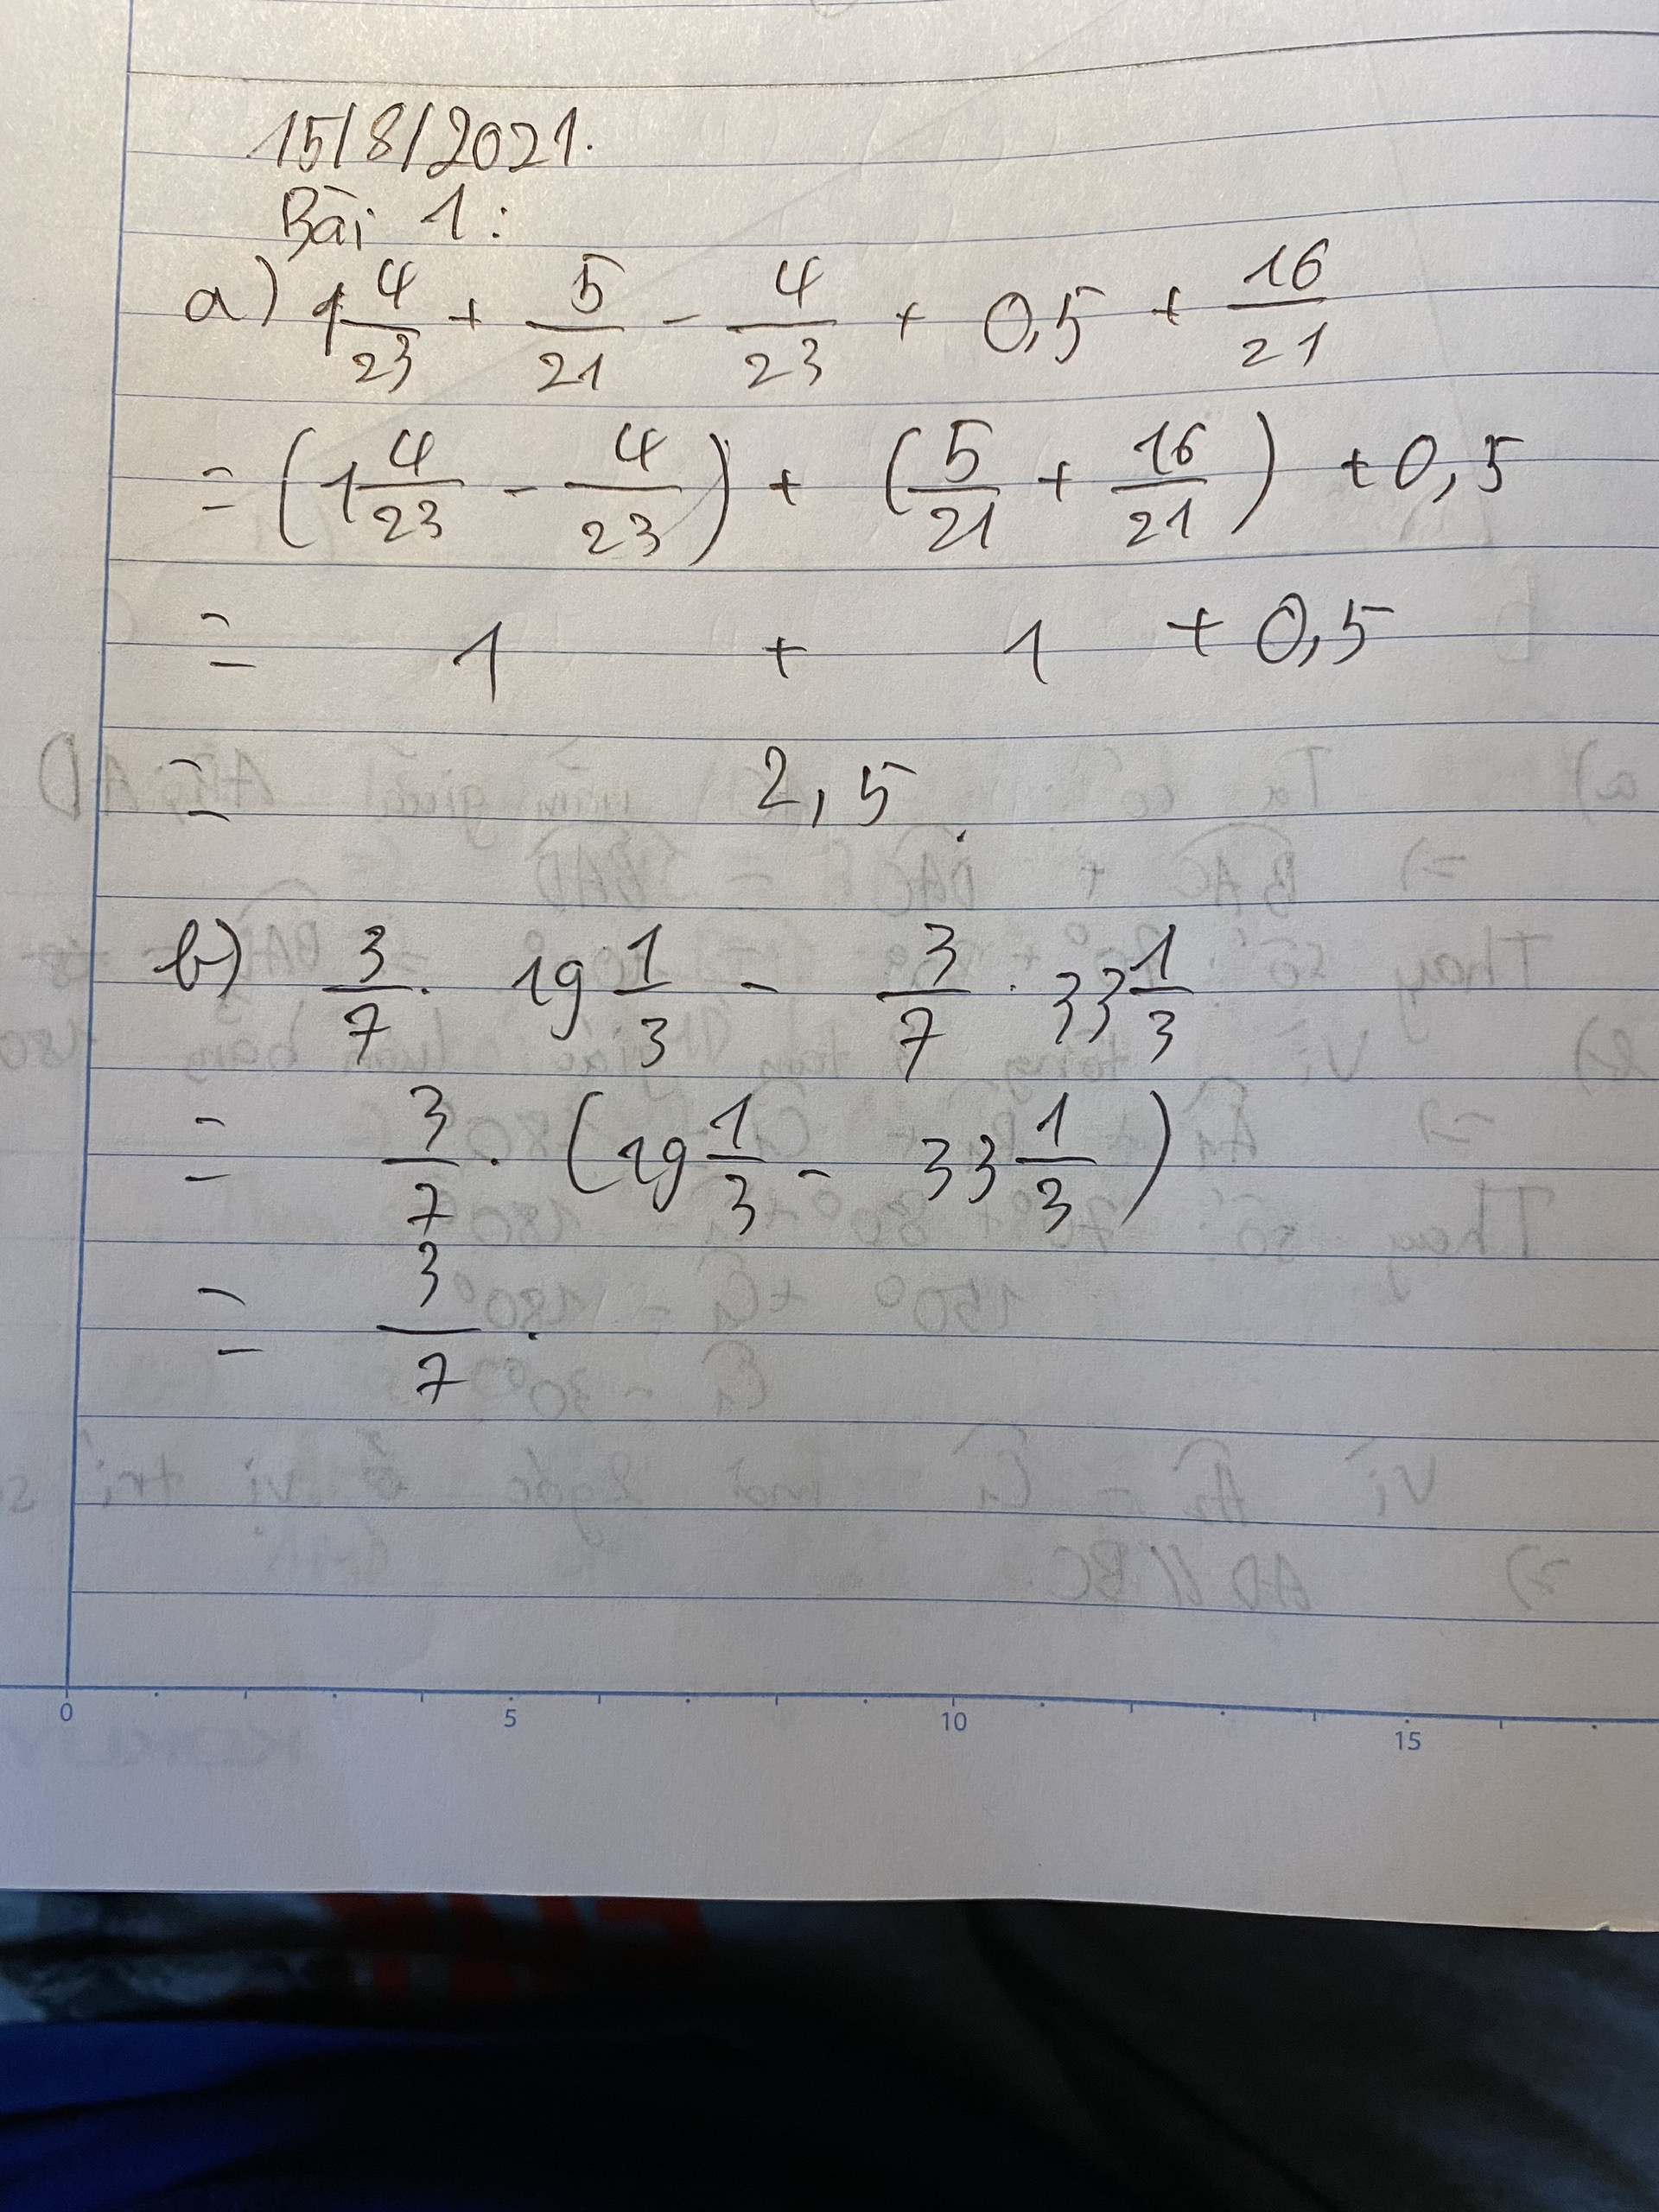 15/8/2021.
Bài 1:
a) 1 4/23 + 5/21 - 4/23 + 0,5 + 16/21
= (1 4/23 - 4/23) + (5/21 + 16/21) + 0,5
= 1 + 1 + 0,5
= 2,5.
b) 3/7 . 19 1/3 - 3/7 . 33 1/3
= 3/7 . (19 1/3 - 33 1/3)
= 3/7 .
0 5 10 15